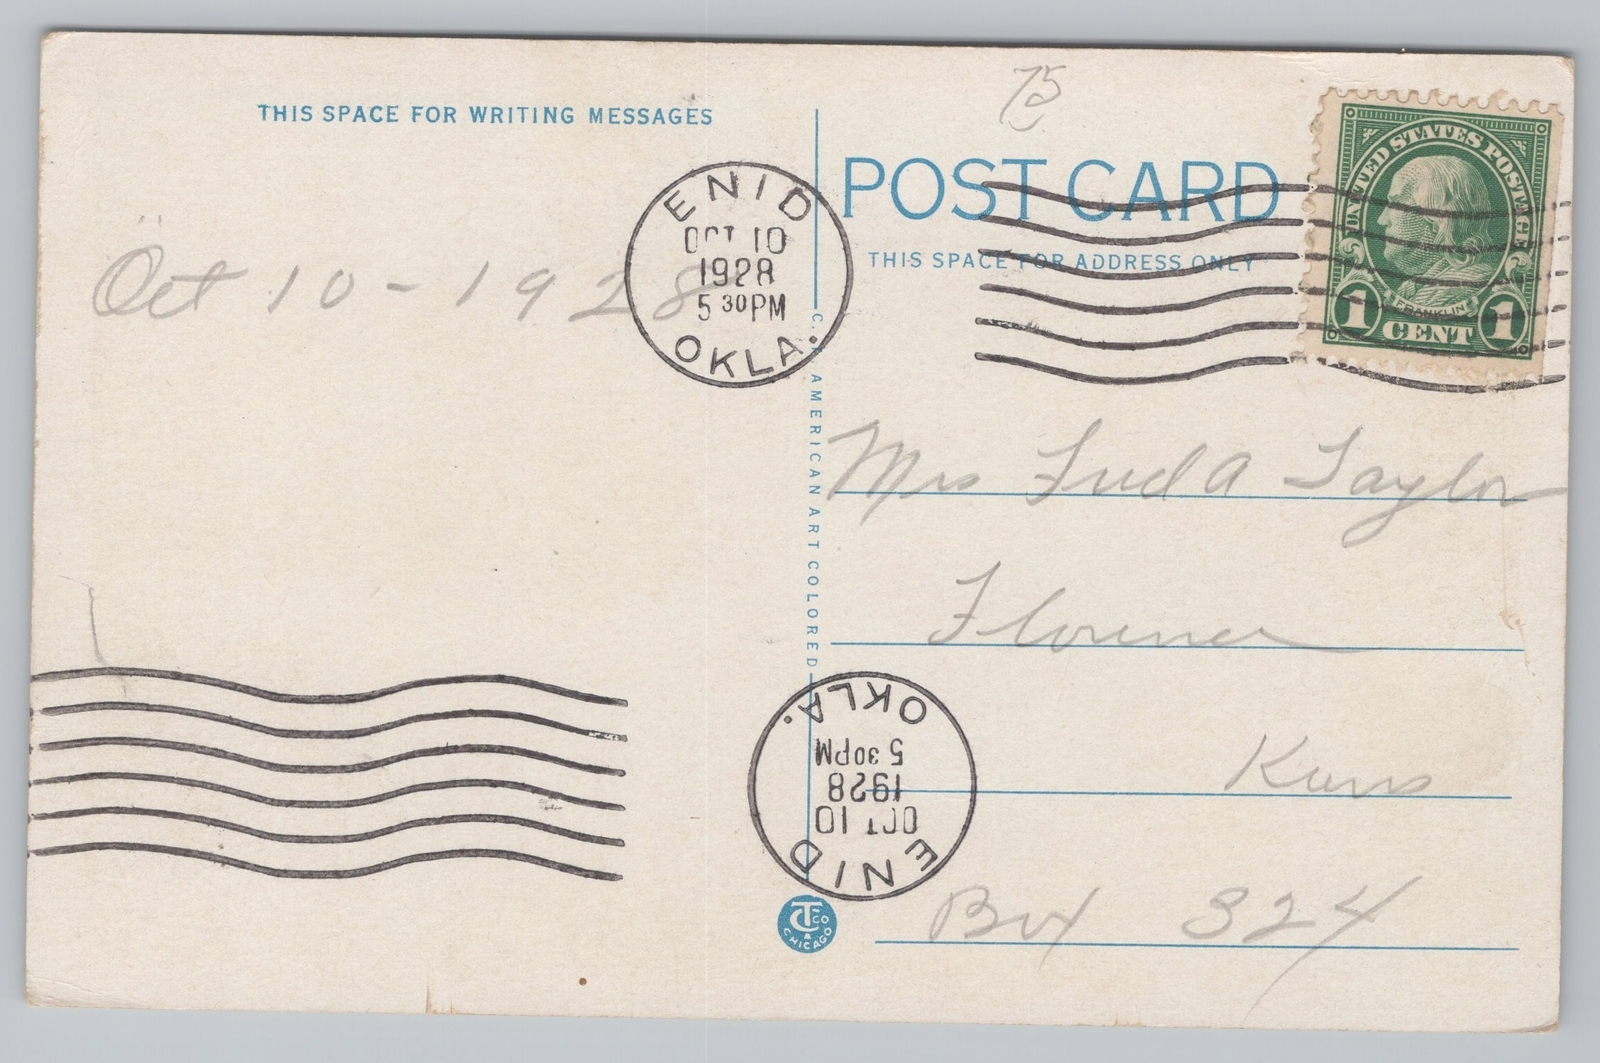 THIS SPACE FOR WRITING MESSAGES
Oct 10-1928
ENID
OCT 10
1928
5 30 PM
OKLA.
75
POST CARD
THIS SPACE FOR ADDRESS ONLY
UNITED STATES POSTAGE
FRANKLIN
1 CENT 1
C.T. AMERICAN ART COLORED
Mrs Fred A Taylor
Florence
Kans
Box 324
ENID
OCT 10
1928
5 30 PM
OKLA.
CT & CO
CHICAGO